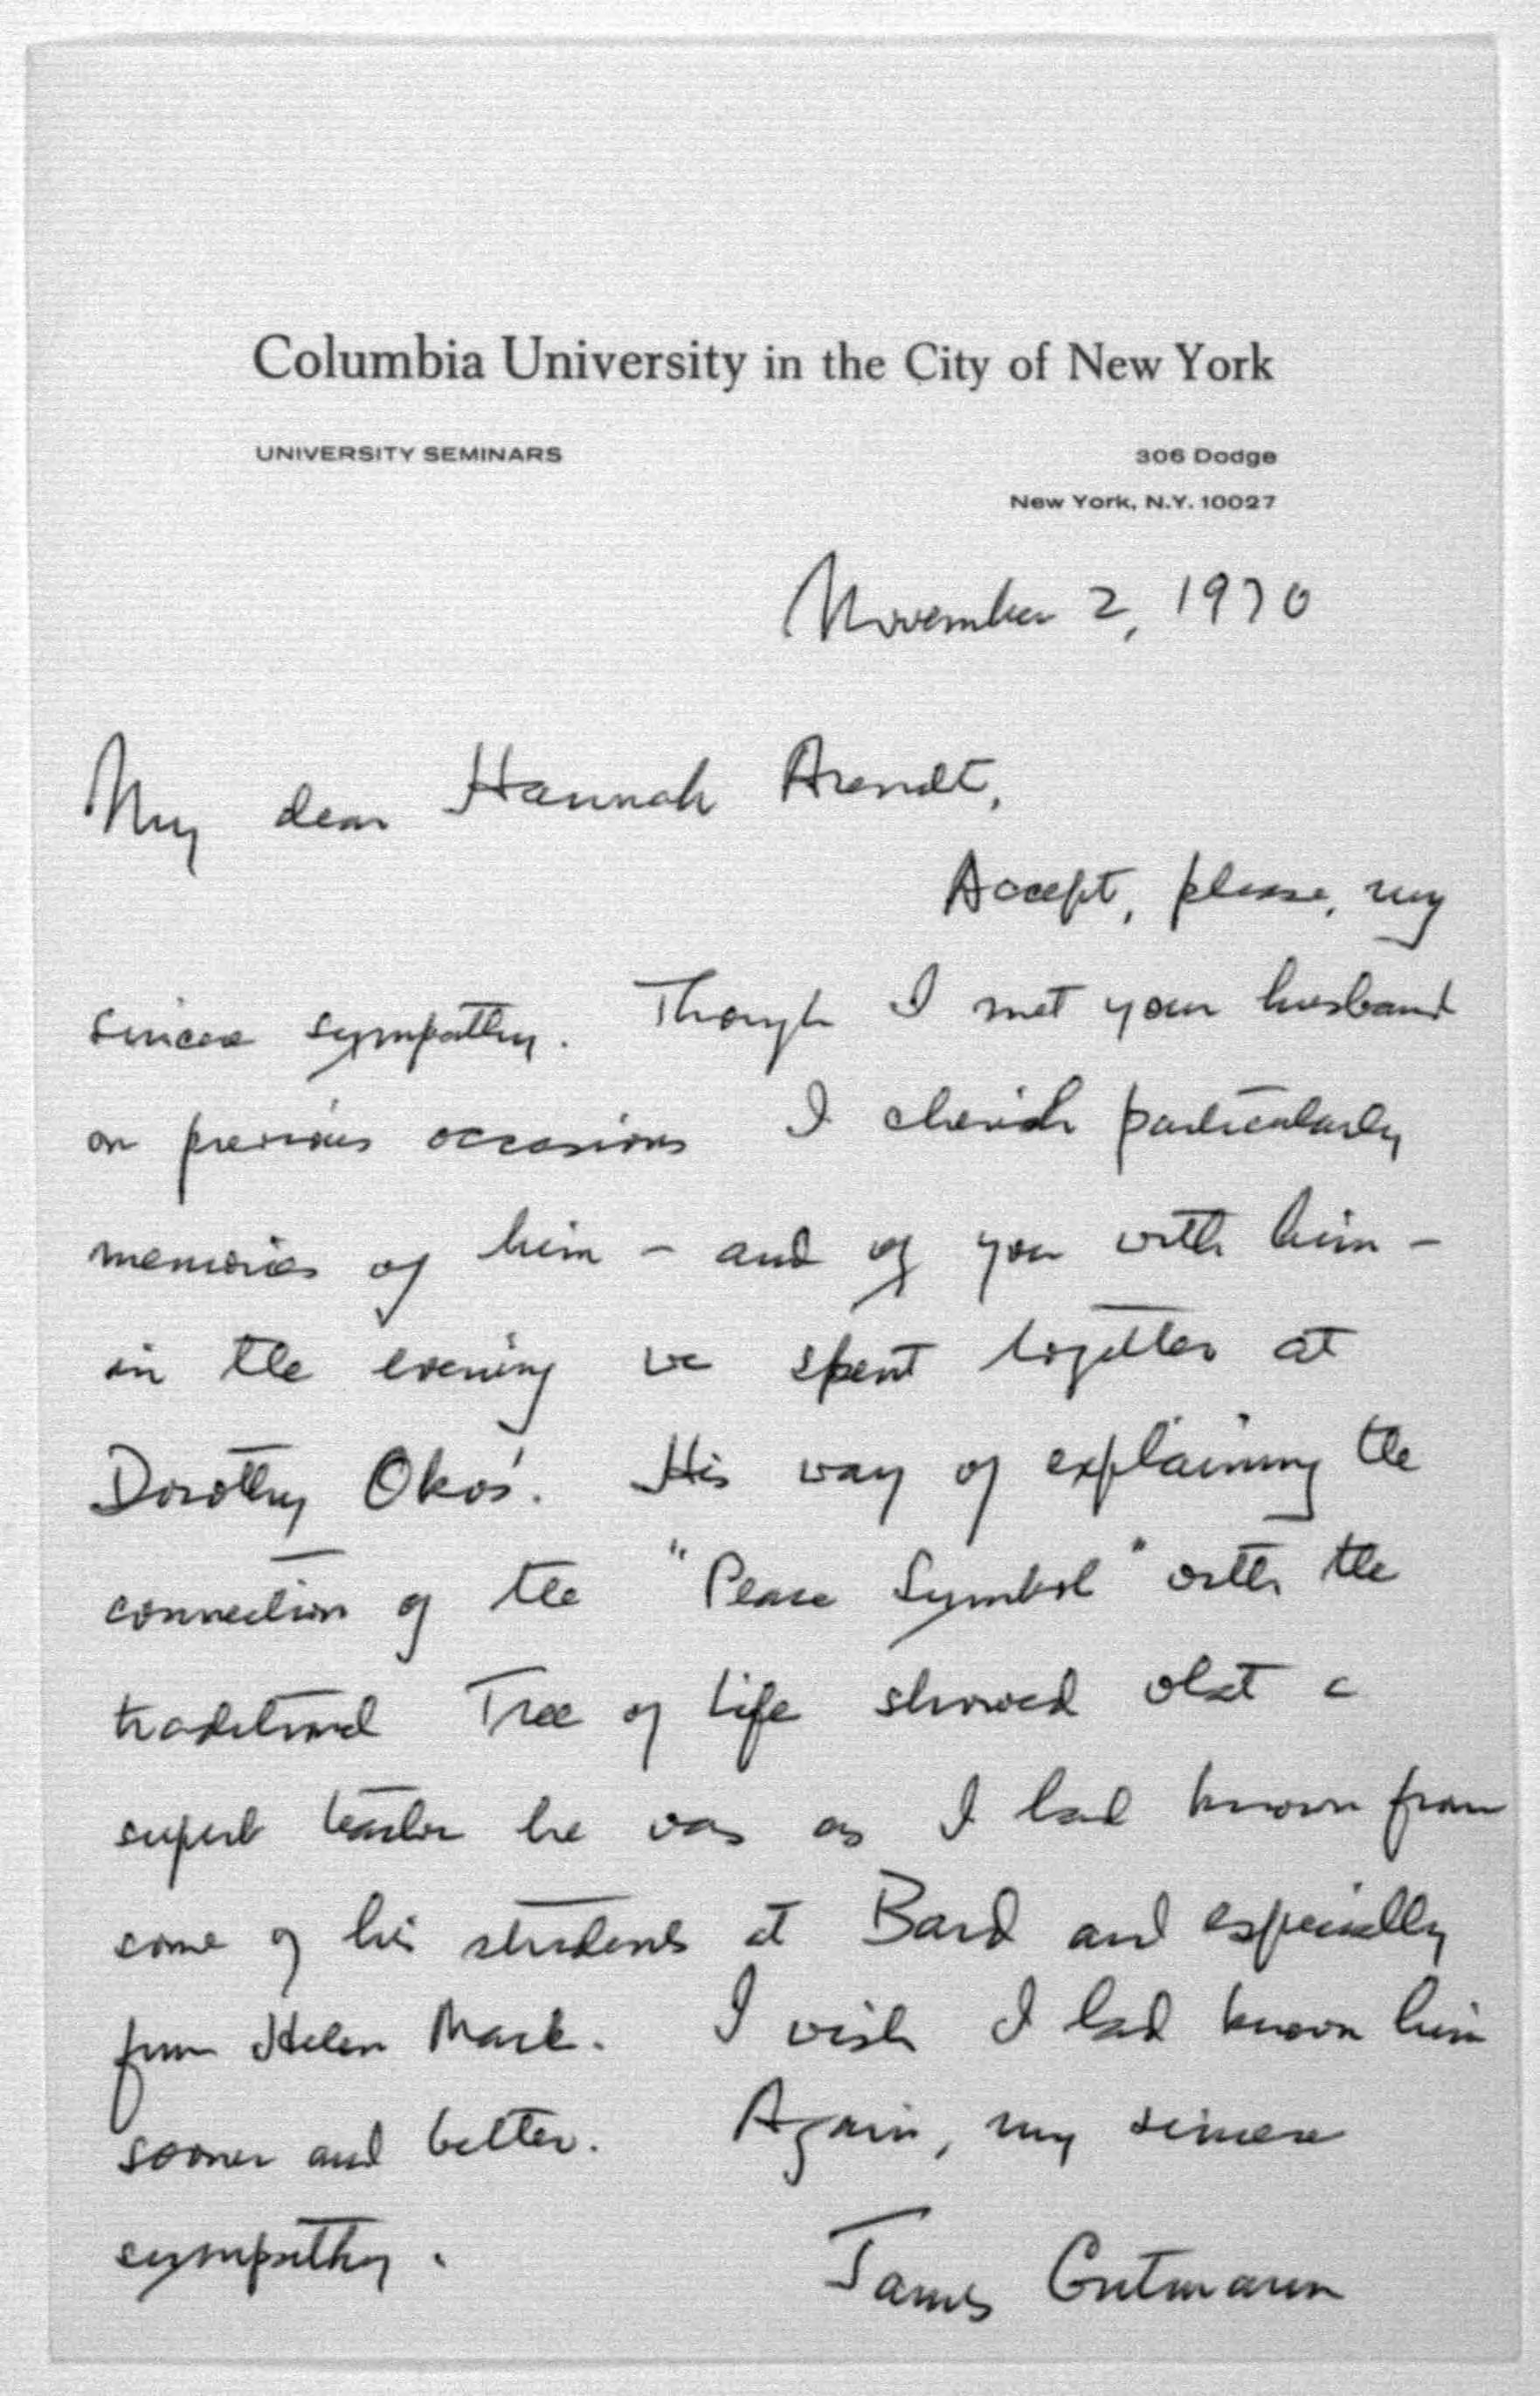 Columbia University in the City of New York
UNIVERSITY SEMINARS
306 Dodge
New York, N.Y. 10027
November 2, 1970
My dear Hannah Arendt,
Accept, please, my
sincere sympathy. Though I met your husband
on previous occasions I cherish particularly
memories of him – and of you with him –
in the evening we spent together at
Dorothy Okos'. His way of explaining the
connection of the "Peace Symbol" with the
traditional Tree of Life showed what a
superb teacher he was as I had known from
some of his students at Bard and especially
from Helen Mack. I wish I had known him
sooner and better. Again, my sincere
sympathy.
James Gutmann